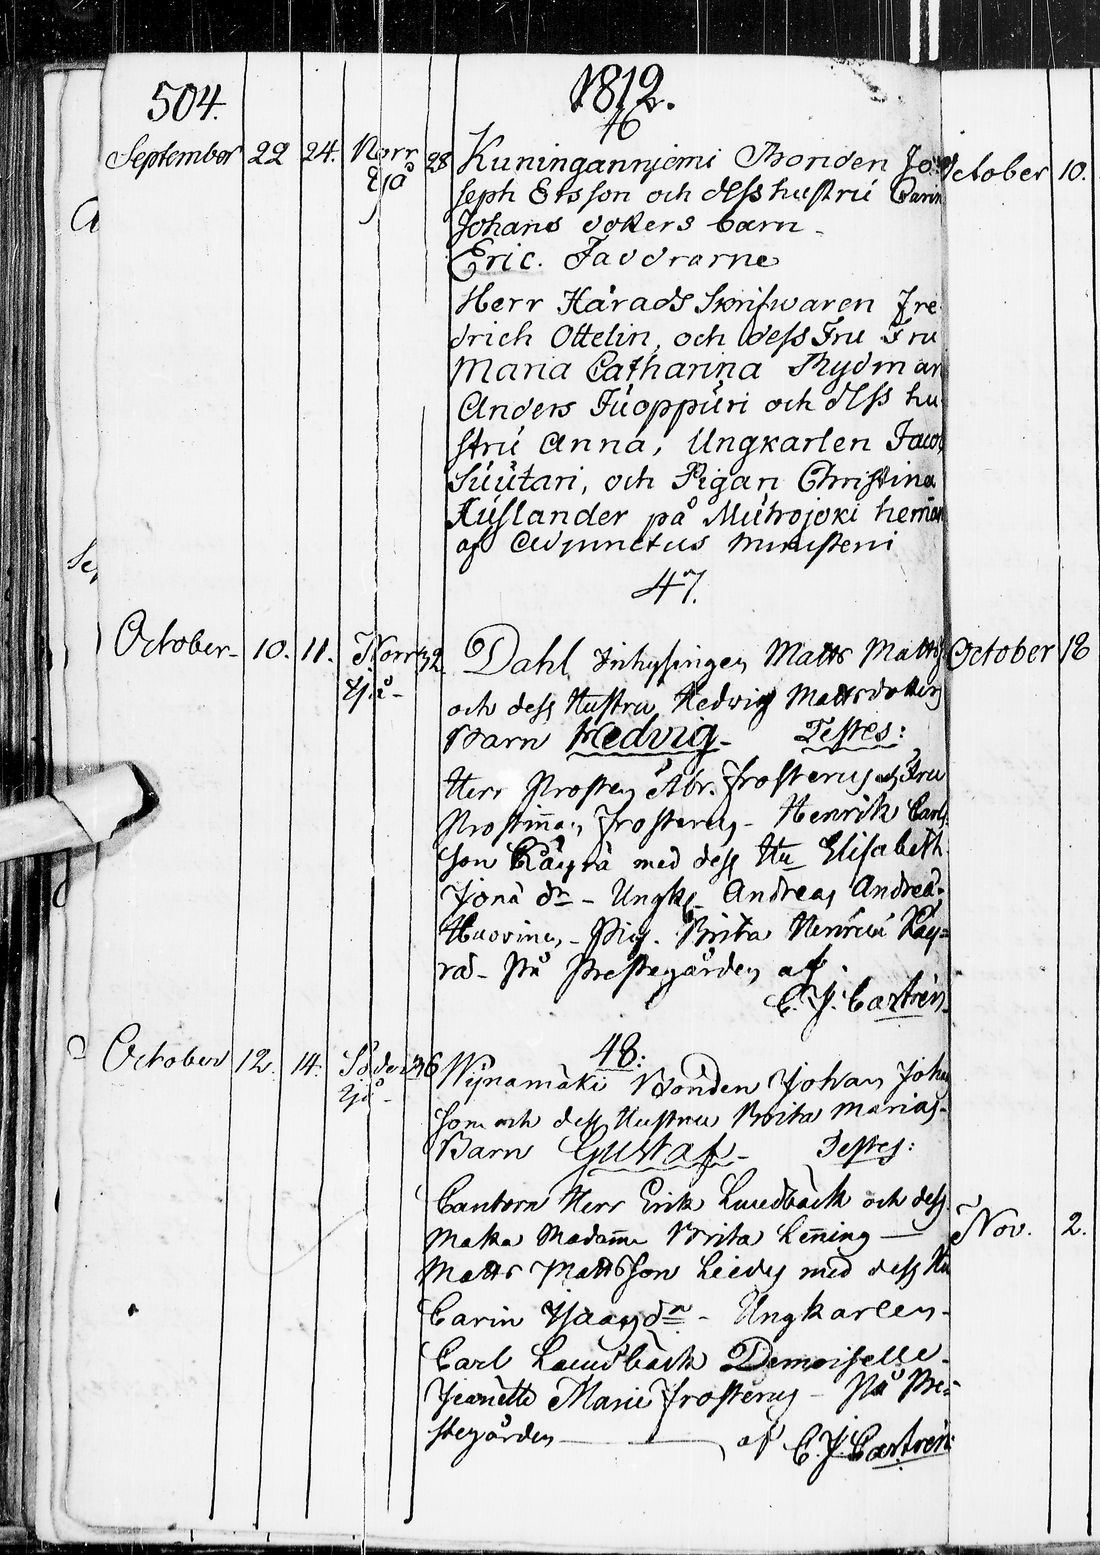 504.
1812.
46
September 22 24. Norr Ijå 28 Kuninganniemi Bonden Jo
seph Ersson och dess hustru Carin
Johans dotters barn
Eric. Faddrarne
Herr Härads Skrifwaren Fre
drich Ottelin, och dess Fru Fru
Maria Catharina Rydman
Anders Tuoppuri och dess hu
stru Anna, Ungkarlen Jacob
Suutari, och Pigan Christina
på Mutrojoki heman
af Adjunctus Ministerii
47.
October 10. 11. Norr Ijå 32. Dahl Inhysingen Matts Matts
och dess Hustru Hedwig Mattsdotters
Barn Hedvig Testes:
Herr Prosten Abr. Frosterus och Fru
Prostinnan Frosterus - Henrik Carls
son Käyrä med dess Hu Elisabeth
Jona dr - Ungk. Andreas Andreæ
Huovinen - Pig. Brita Henrici Käy=
rä - på Prestegården af
C. J. Castrén.
48:
October 12. 14. Söder Ijå 36 Wynamäki Bonden Johan Johan
son och dess Hustru Brita Marias
Barn Gustaf - Testes:
Cantorn Herr Erik Lundbäck och dess
maka Madame Brita Lenning
Matts Mattsson Liedes med dess Hu
Carin Isaacsdr - Ungkarlen
Carl Lundbäck Demoiselle
Jeanette Marie Frosterus - på Pre=
stegården af C. J. Castrén
October 10.
October 18
Nov. 2.